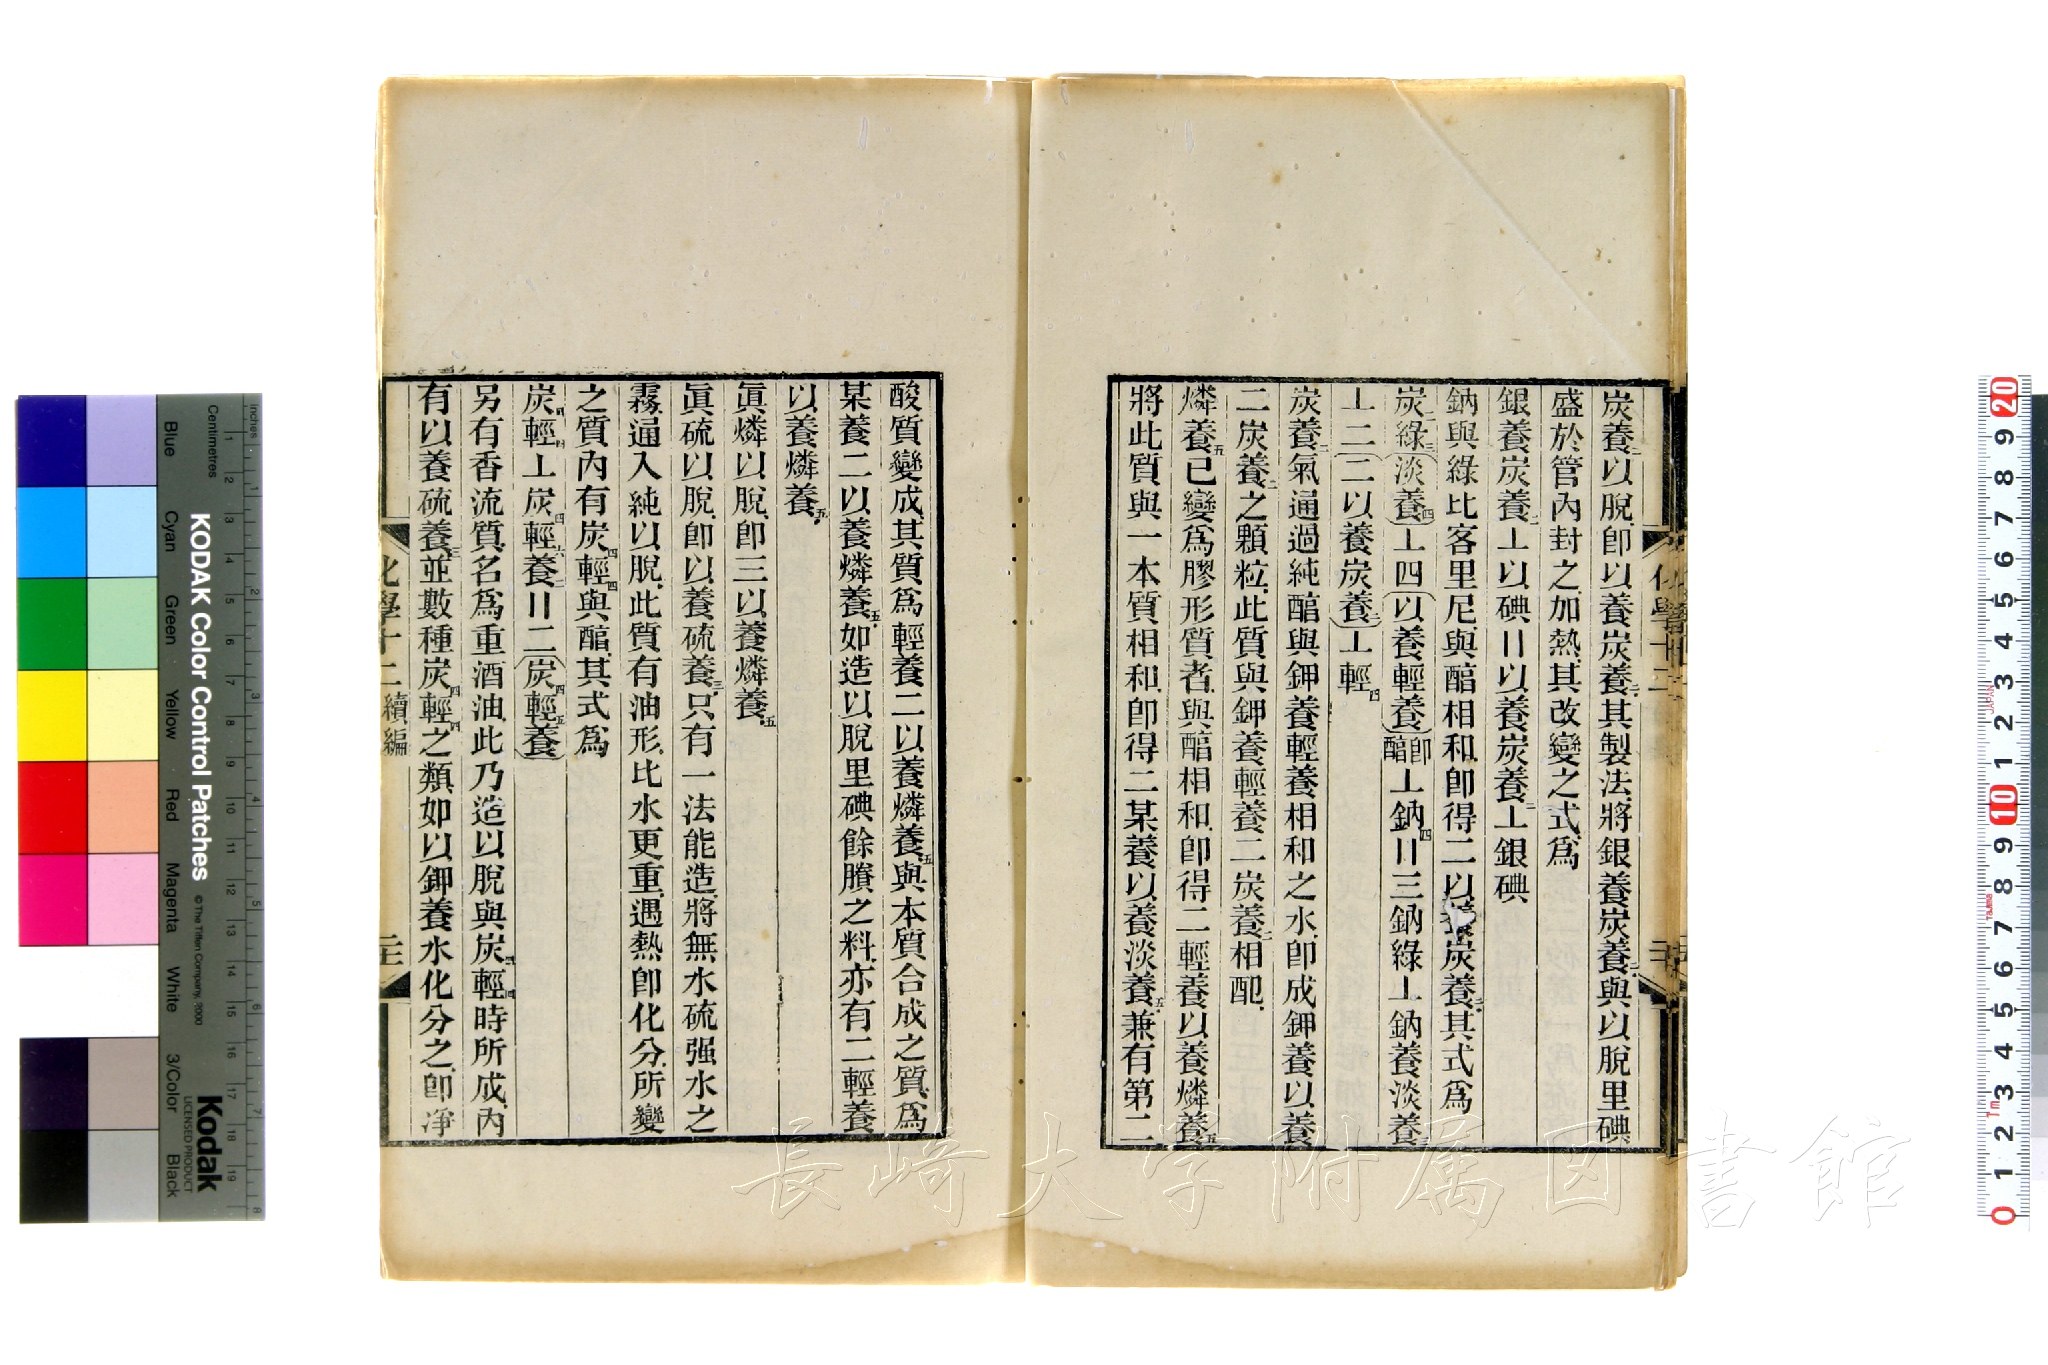 炭養二以脫卽以養炭養二其製法將銀養炭養二與以脫里碘
盛於管內封之加熱其改變之式爲
銀養炭養二⊥以碘〢以養炭養二⊥銀碘
鈉與綠比客里尼與醕相和卽得二以養炭養二其式爲
炭二綠三(淡養四)⊥四(以養輕養)卽醕⊥鈉四〢三鈉綠⊥鈉養淡養三
⊥二(二以養炭養二)⊥輕四
炭養二氣通過純醕與鉀養輕養相和之水卽成鉀養以養
二炭養二之顆粒此質與鉀養輕養二炭養二相配
燐養五已變爲膠形質者與醕相和卽得二輕養以養燐養五
將此質與一本質相和卽得二某養以養淡養五兼有第二
化學十二
酸質變成其質爲輕養二以養燐養五與本質合成之質爲
某養二以養燐養五如造以脫里碘餘賸之料亦有二輕養
以養燐養五
眞燐以脫卽三以養燐養五
眞硫以脫卽以養硫養三只有一法能造將無水硫强水之
霧通入純以脫此質有油形比水更重遇熱卽化分所變
之質內有炭四輕四與醕其式爲
炭四輕四⊥炭四輕六養二〢二(炭四輕五養)
另有香流質名爲重酒油此乃造以脫與炭四輕四時所成內
有以養硫養三並數種炭四輕四之類如以鉀養水化分之卽凈
化學十二 續編
Centimetres
inches
KODAK Color Control Patches
© The Tiffen Company, 2000
Kodak
LICENSED PRODUCT
Blue
Cyan
Green
Yellow
Red
Magenta
White
3/Color
Black
長崎大学附属図書館
JAPAN
Tajima